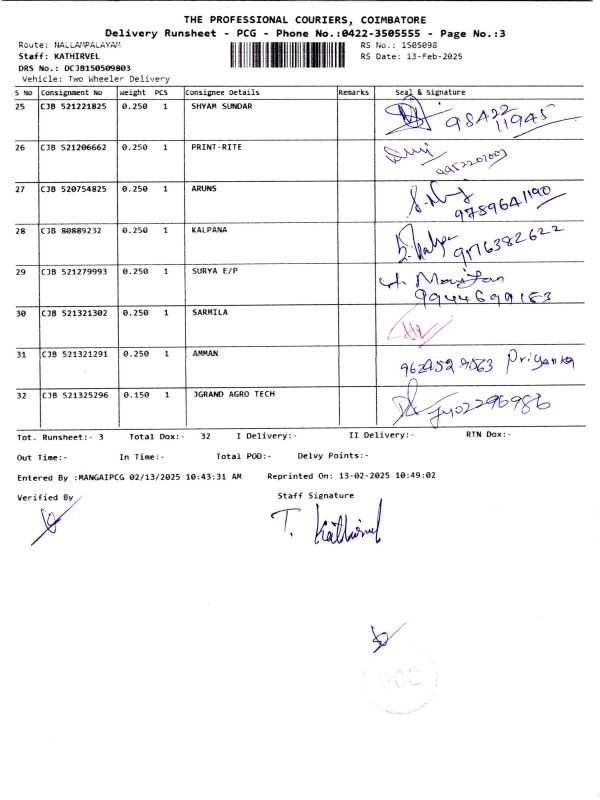 THE PROFESSIONAL COURIERS, COIMBATORE
Delivery Runsheet - PCG - Phone No.:0422-3505555 - Page No.:3
Route: NALLAMPALAYAM RS No.: 1505098
Staff: KATHIRVEL RS Date: 13-Feb-2025
DRS No.: DCJB150509803
Vehicle: Two Wheeler Delivery
S No Consignment No Weight PCS Consignee Details Remarks Seal & Signature
25 CJB 521221825 0.250 1 SHYAM SUNDAR 98422 11945
26 CJB 521206662 0.250 1 PRINT-RITE
27 CJB 520754825 0.250 1 ARUNS 9789641190
28 CJB 80889232 0.250 1 KALPANA
29 CJB 521279993 0.250 1 SURYA E/P
30 CJB 521321302 0.250 1 SARMILA
31 CJB 521321291 0.250 1 AMMAN Priyanka
32 CJB 521325296 0.150 1 JGRAND AGRO TECH
Tot. Runsheet:- 3 Total Dox:- 32 I Delivery:- II Delivery:- RTN Dox:-
Out Time:- In Time:- Total POD:- Delvy Points:-
Entered By :MANGAIPCG 02/13/2025 10:43:31 AM Reprinted On: 13-02-2025 10:49:02
Verified By Staff Signature
T. Kathirvel